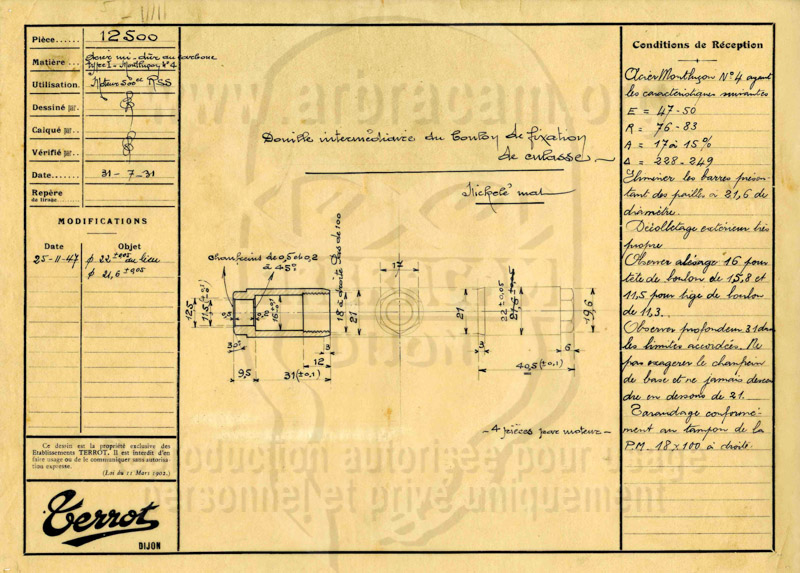 Pièce...... 12500
Matière... Acier mi-dur au carbone
Type I - Montluçon N°4
Utilisation. Moteur 500cc RSS
Dessiné par.
Calqué par.
Vérifié par..
Date........ 31-7-31
Repère
de tirage
MODIFICATIONS
Date Objet
25-11-47 ø 22 ±0,05 au lieu
ø 21,6 ±0,05
Ce dessin est la propriété exclusive des
Etablissements TERROT. Il est interdit d'en
faire usage ou de le communiquer sans autorisa-
tion expresse.
(Loi du 11 Mars 1902.)
Terrot
DIJON
Douille intermédiaire du boulon de fixation
de culasse
Nickelé mat
Chanfreins de 0,5 et 0,2
à 45°
18 à droite Pas de 100
17
12,5
11,5
16
21
3
12
30°
9,5
31 (±0,1)
21
22 ±0,05
21,6 ±0,05
19,6
3
6
40,5 (±0,1)
- 4 pièces par moteur -
Conditions de Réception
Acier Montluçon N°4 ayant
les caractéristiques suivantes
E = 47-50
R = 76-83
A = 17 à 15%
Δ = 228-249
Eliminer les barres présen-
tant des pailles à 21,6 de
diamètre.
Décolletage extérieur très
propre
Observer alésage 16 pour
tête de boulon de 15,8 et
11,5 pour tige de boulon
de 11,3.
Observer profondeur 31 dans
les limites accordées. Ne
pas exagérer le chanfrein
de base et ne jamais descen
dre en dessous de 21.
Taraudage conformé-
ment au tampon de la
P.M. 18x100 à droite.
reproduction autorisée pour usage
personnel et privé uniquement